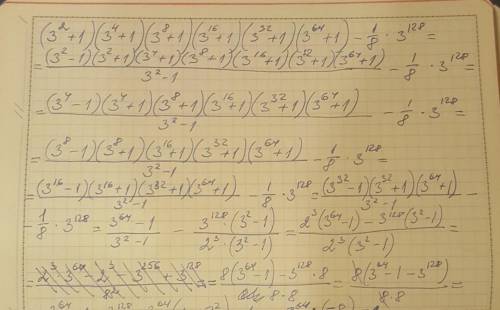 (3²+1)(3⁴+1)(3⁸+1)(3¹⁶+1)(3³²+1)(3⁶⁴+1) - 1/8 · 3¹²⁸ =
= (3²-1)(3²+1)(3⁴+1)(3⁸+1)(3¹⁶+1)(3³²+1)(3⁶⁴+1) / 3²-1 - 1/8 · 3¹²⁸ =
= (3⁴-1)(3⁴+1)(3⁸+1)(3¹⁶+1)(3³²+1)(3⁶⁴+1) / 3²-1 - 1/8 · 3¹²⁸ =
= (3⁸-1)(3⁸+1)(3¹⁶+1)(3³²+1)(3⁶⁴+1) / 3²-1 - 1/8 · 3¹²⁸ =
= (3¹⁶-1)(3¹⁶+1)(3³²+1)(3⁶⁴+1) / 3²-1 - 1/8 · 3¹²⁸ = (3³²-1)(3³²+1)(3⁶⁴+1) / 3²-1 -
- 1/8 · 3¹²⁸ = 3⁶⁴-1 / 3²-1 - 3¹²⁸·(3²-1) / 2³·(3²-1) = 2³(3⁶⁴-1)-3¹²⁸(3²-1) / 2³(3²-1) =
= 8(3⁶⁴-1)-3¹²⁸·8 / 8·8 = 8(3⁶⁴-1-3¹²⁸) / 8·8 =